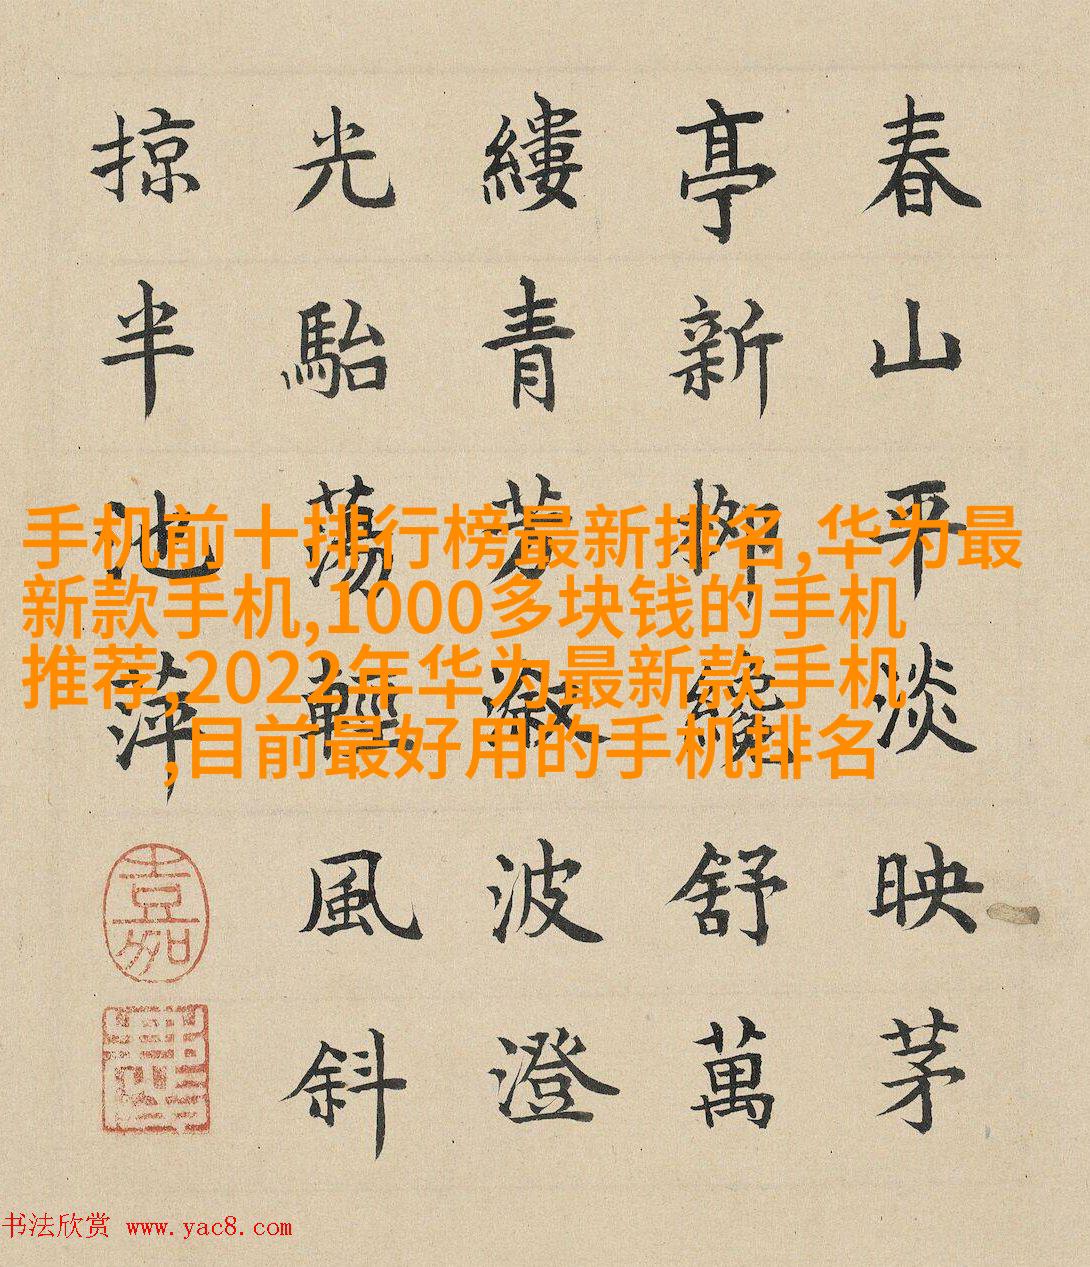 春山平淡映茅
亭新柳纔舒萬
縷青芳溆波澄
光駘蕩輕風斜
掠半池萍
嘉
手机前十排行榜最新排名,华为最
新款手机,1000多块钱的手机
推荐,2022年华为最新款手机
,目前最好用的手机排名
书法欣赏 www.yac8.com